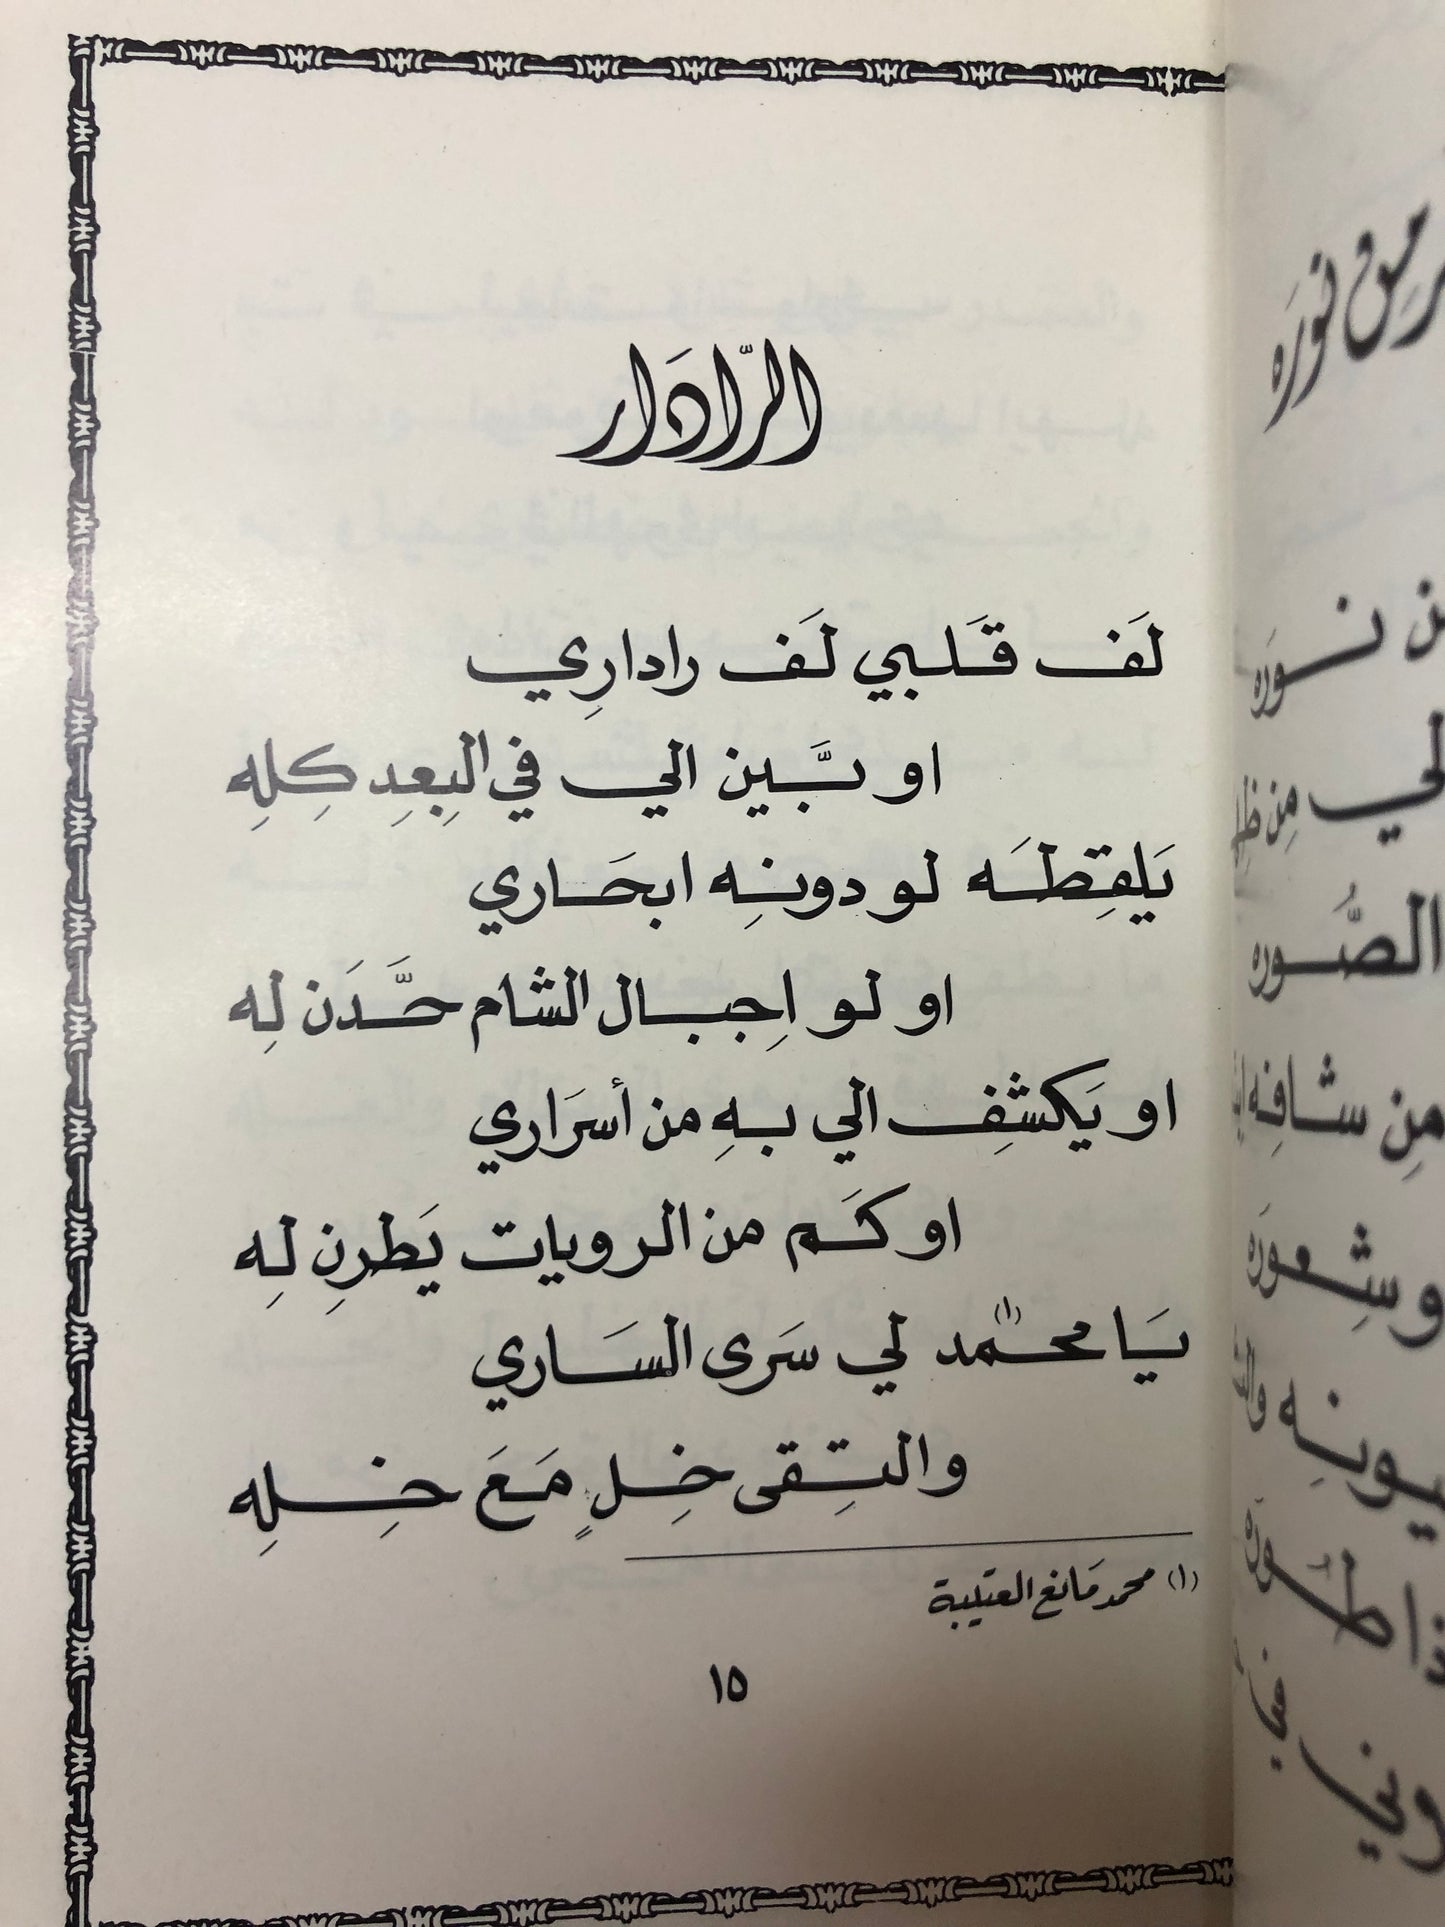 الرَّادَار
لَف قَلبي لَف رادارِي
او بَّين الي في البِعِدِ كِلِه
يَلقِطَه لو دونِه ابحَاري
او لو اِجبال الشام حَّدَن لِه
او يَكشِف الي بِهِ من أسرَاري
او كَم من الرويات يَطرِن لِه
يَا محمد (١) لي سَرى السَاري
والتِقى خِلٍ مَعَ خِلِه
(١) محمد مَانع العتيبة
١٥